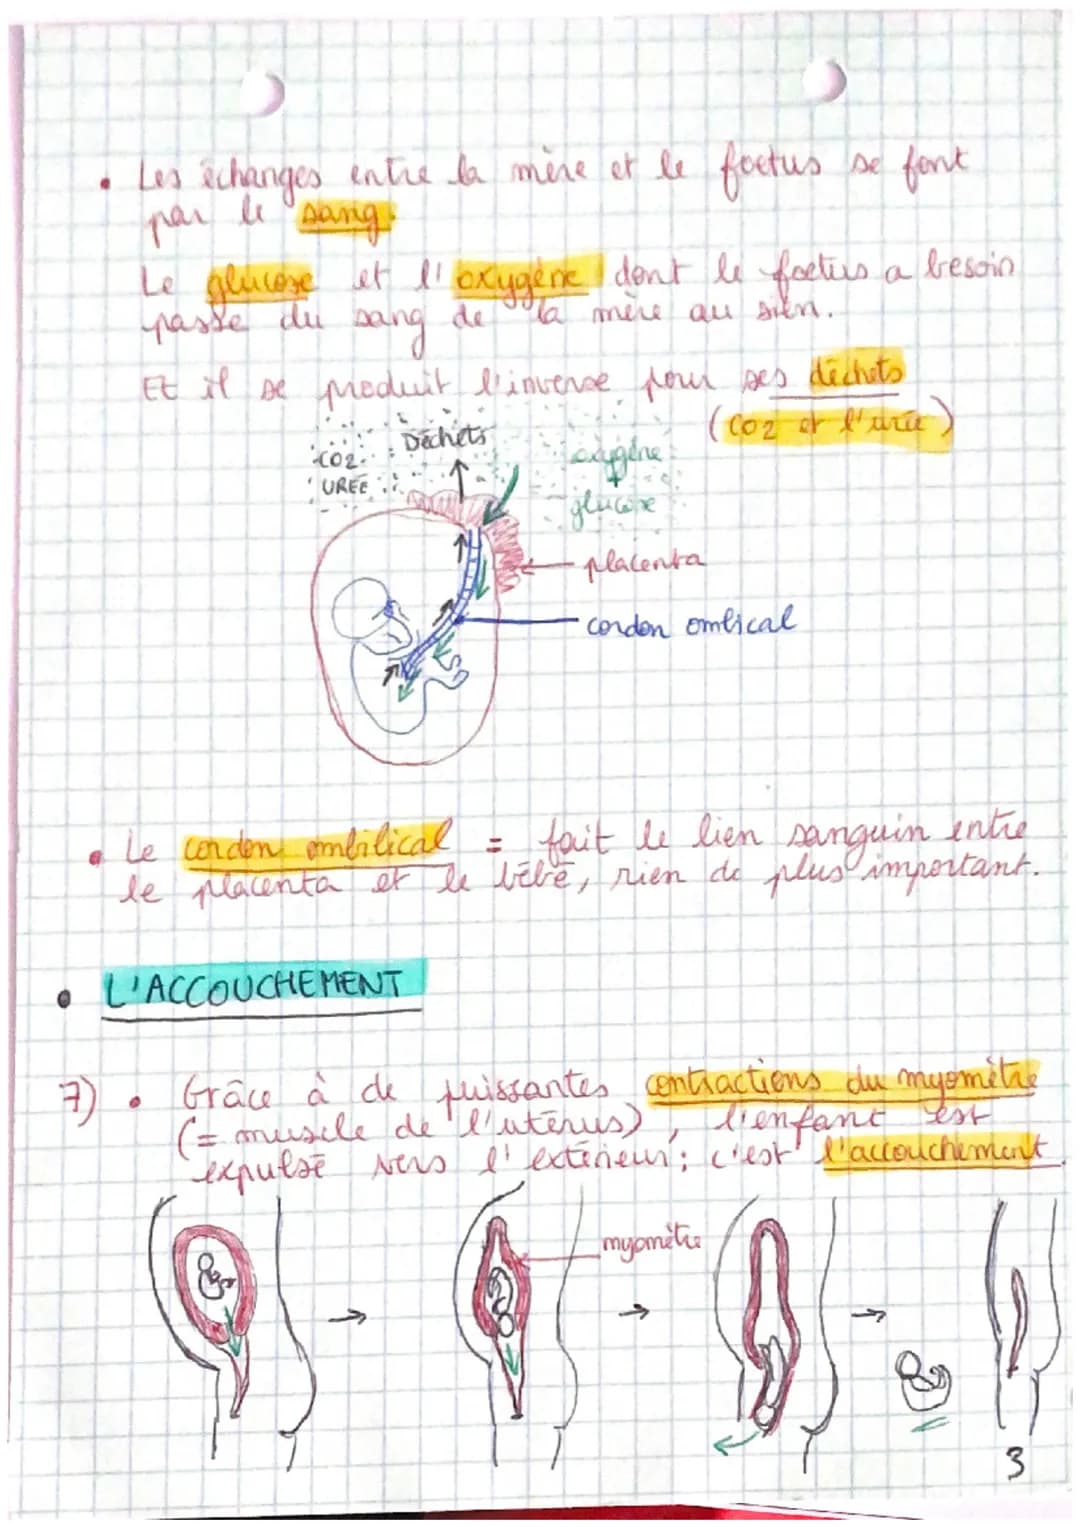 • Les échanges entre la mère et le foetus se font
par le sang.
Le glucose et l'oxygène dont le foetus a besoin
passe du sang de la mère au sien.
Et il se produit l'inverse pour ses déchets
(CO2 et l'urée)
Déchets
CO2
URÉE
oxygène
+
glucose
placenta
cordon ombical
• Le cordon ombilical = fait le lien sanguin entre
le placenta et le bébé, rien de plus important.
• L'ACCOUCHEMENT
7) • Grâce à de puissantes contractions du myomètre
(= muscle de l'utérus), l'enfant est
expulsé vers l'extérieur; c'est l'accouchement.
myomètre
3